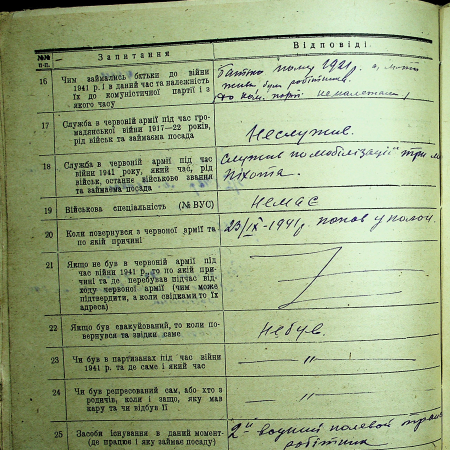 №№ п.п.
Запитання
Відповіді
16
Чим займались батьки до війни
1941 р. і в даний час та належність
їх до комуністичної партії і з
якого часу
Батько помер 1921 р. а мати
жива була робітниця.
до ком. партії не належали
17
Служба в червоній армії під час гро-
мадянської війни 1917—22 років,
рід військ та займаєма посада
Неслужив.
18
Служба в червоній армії під час
війни 1941 року, який час, рід
військ, останнє військове звання
та займаєма посада
Служив по мобілізації три м
піхота.
19
Військова спеціальність (№ ВУС)
Немає
20
Коли повернувся з червоної армії та
по якій причині
23/IX-1941 р. попав у полон.
21
Якщо не був в червоній армії під
час війни 1941 р., то по якій при-
чині та де перебував підчас від-
ходу червоної армії (чим може
підтвердити, а коли свідками то їх
адреса)
22
Якщо був евакуйований, то коли по-
вернувся та звідки саме
Небув.
23
Чи був в партизанах під час війни
1941 р. та де саме і який час
— " —
24
Чи був репресований сам, або хто з
родичів, коли і защо, яку мав
кару та чи відбув її
— " —
25
Засоби існування в даний момент-
(де працює і яку займає посаду)
2й водний полевой
робітник